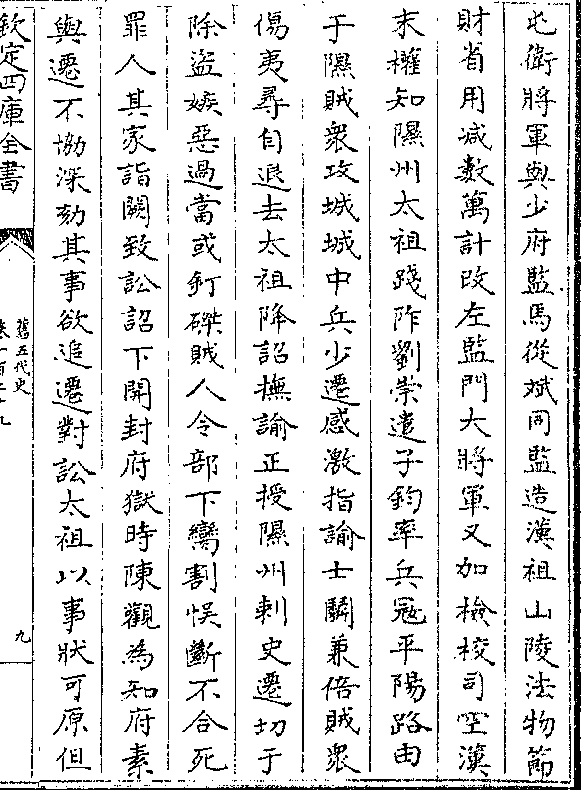 屯衛將軍與少府監馬從斌同監造漢祖山陵法物節
財省用减數萬計改左監門大將軍又加檢校司空漢
末權知隰州太祖踐阼劉崇遣子鈞率兵冦平陽路由
于隰賊衆攻城城中兵少遷感激指諭士鬬兼倍賊衆
傷夷尋自退去太祖降詔撫諭正授隰州刺史遷切于
除盜嫉惡過當或釘磔賊人令部下臠割悮斷不合死
罪人其家詣闕致訟詔下開封府獄時陳觀為知府素
與遷不協深劾其事欲追遷對訟太祖以事狀可原但
欽定四庫全書
舊五代史
卷一百二十九
九